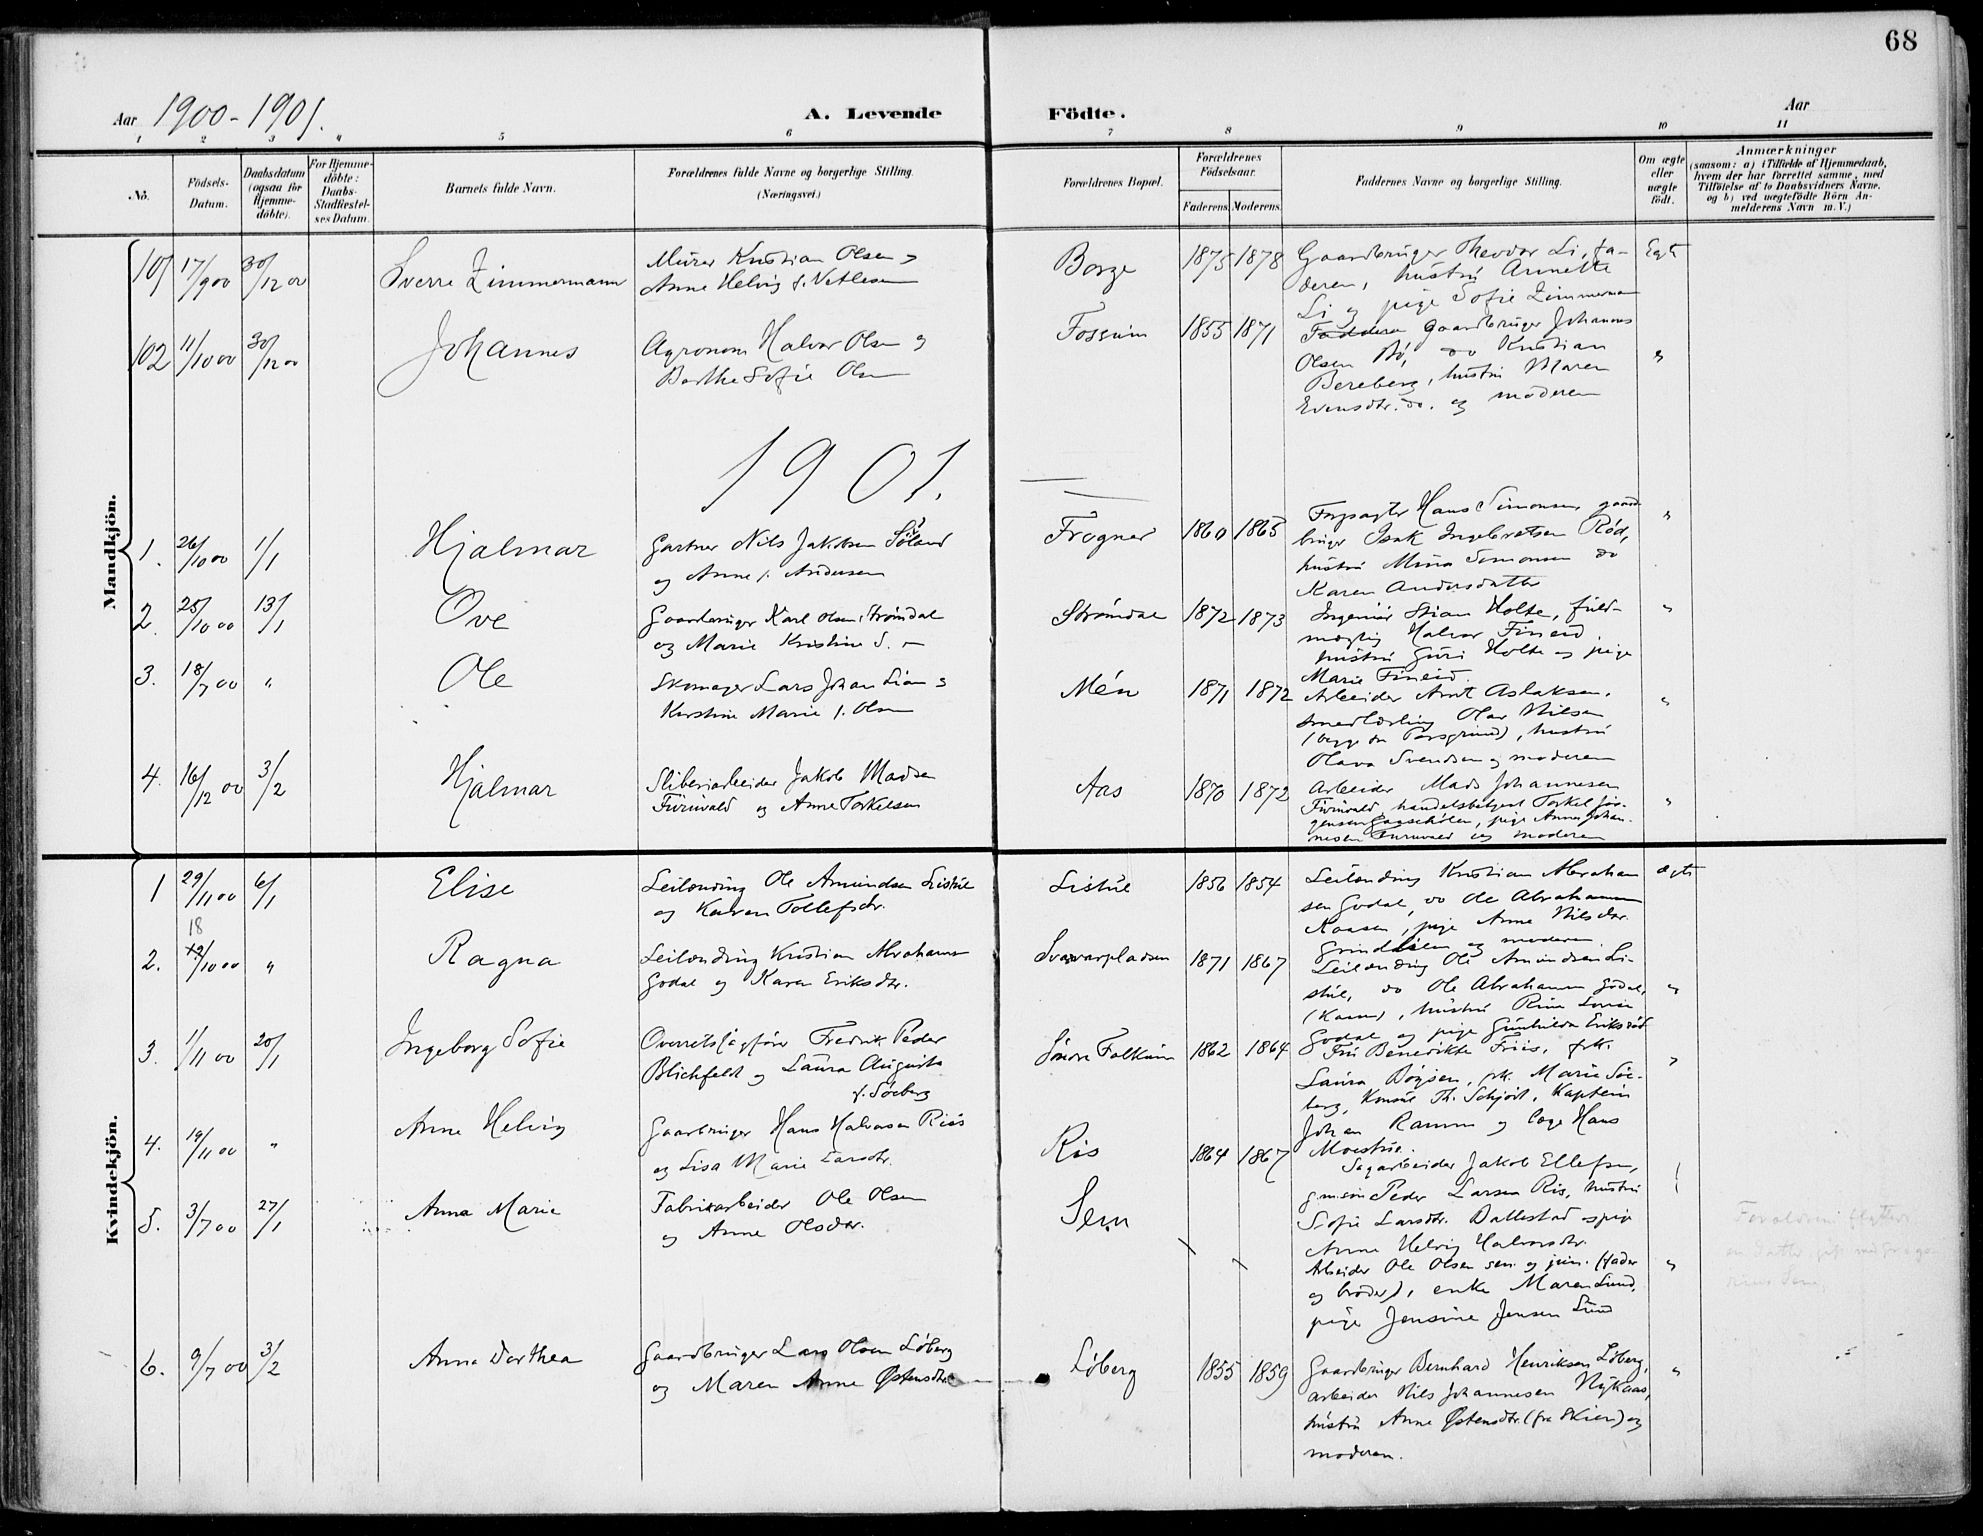 68
Aar 1900-1901.
A. Levende Födte.
Aar
1 2 3 4 5 6 7 8 9 10 11
No.
Födsels-Datum.
Daabsdatum (ogsaa for Hjemme-döbte).
For Hjemme-döbte: Daabs-Stadfæstel-ses Datum.
Barnets fulde Navn.
Forældrenes fulde Navne og borgerlige Stilling.
(Næringsvei.)
Forældrenes Bopæl.
Forældrenes Födselsaar.
Faderens Moderens.
Faddernes Navne og borgerlige Stilling.
Om ægte eller uægte födt.
Anmærkninger
(saasom: a) i Tilfælde af Hjemmedaab,
hvem der har forrettet samme, med
Tilföielse af to Daabsvidners Navne.
og b) ved uægtefödte Börn An-
melderens Navn m. V.)
Mandkjön.
101 17/9 00 30/12 00 Sverre Zimmermann
Murer Kristian Olsen
Anne Helvig f. Vetlesen
Borge 1875 1878
Gaardbruger Theodor Li, fa-
deren, hustru Annette
Li og pige Sofie Zimmerman
Egte
102 11/10 00 30/12 00 Johannes
Agronom Halvor Olsen og
Berthe Sofie Olsen
Fossum 1855 1871
Faddere Gaardbruger Johannes
Olsen Bö, do Kristian
Bereberg, hustru Maren
Evensdtr. do. og moderen
"
1901.
1. 26/10 00 1/1 Hjalmar
Gartner Nils Jakobsen Söland
og Anne f. Andersen
Frogner 1860 1865
Forpagter Hans Simonsen, gaard
bruger Isak Ingebretsen Röd,
hustru Mina Simonsen do
Karen Andersdatter
"
2. 25/10 00 13/1 Ove
Gaardbruger Karl Olsen Strömdal
og Marie Kristine S. –
Strömdal 1872 1873
Ingeniör Stian Holte, fuld-
mægtig Halvor Fineid,
hustru Guri Holte og pige
Marie Fineid.
"
3. 18/7 00 " Ole
Skomager Lars Johan Lian og
Kirstine Marie f. Olsen
Mén 1871 1872
Arbeider Arnt Aslaksen,
smedlærling Olav Nilsen
(begge fra Porsgrund), hustru
Olava Svendsen og moderen
"
4. 16/12 00 3/2 Hjalmar
Sliberiarbeider Jakob Madsen
Furuvald og Anne Torkelsen
Aas 1870 1872
Arbeider Mads Johannesen
Furuvald, handelsbetjent Torkel Jör-
gensen, pige Anna Johan-
nesen Furuvald og moderen
"
Kvindekjön.
1 29/11 00 6/1 Elise
Leilænding Ole Amundsen Listul
og Karen Tollefsdr.
Listul 1856 1854
Leilænding Kristian Abraham
sen Godal, do Ole Abrahamsen
Kaasen, pige Anne Nilsdtr.
Grindlien og moderen
ægte
2. 18 12/10 00 " Ragna
Leilænding Kristian Abrahamsen
Godal og Karen Eriksdtr.
Svarvarpladsen 1871 1867
Leilænding Ole Amundsen Li-
stul, do Ole Abrahamsen Godal,
(Kaasen), hustru
Godal og pige Gunhilda Eriksröd
"
3. 1/11 00 20/1 Ingeborg Sofie
Overretssagförer Fredrik Peder
Blichfeldt og Laura Augusta
f. Söeberg
Söndre Falkum 1862 1864
Fru Benedikte Friis, frk.
Laura Böyesen, frk. Marie Söe-
berg, Konsul Th. Schjödt, Kaptein
Johan Ramm og læge Hans
Moestue.
"
4. 19/11 00 " Anne Helvig
Gaardbruger Hans Halvorsen Riis
og Lisa Marie Larsdtr.
Ris 1864 1867
Sagarbeider Jakob Ellefsen,
gm.sön Peder Larsen Ris, hustru
Sofie Larsdtr. Ballestad og pige
Anne Helvig Halvorsdtr.
5. 3/7 00 27/1 Anna Marie
Fabrikarbeider Ole Olsen
og Anne Olsdtr.
Sem
Arbeider Ole Olsen sen. og jun. (fader
og broder), enke Maren Lund,
pige Jensine Jensen Lund
"
6. 9/7 00 3/2 Anna Dorthea
Gaardbruger Lars Olsen Löberg
og Maren Anne Östensdtr.
Löberg 1855 1859
Gaardbruger Bernhard Henriksen Löberg,
arbeider Nils Johannesen Nykaas,
hustru Anne Östensdtr. (fra Skien) og
moderen.
"